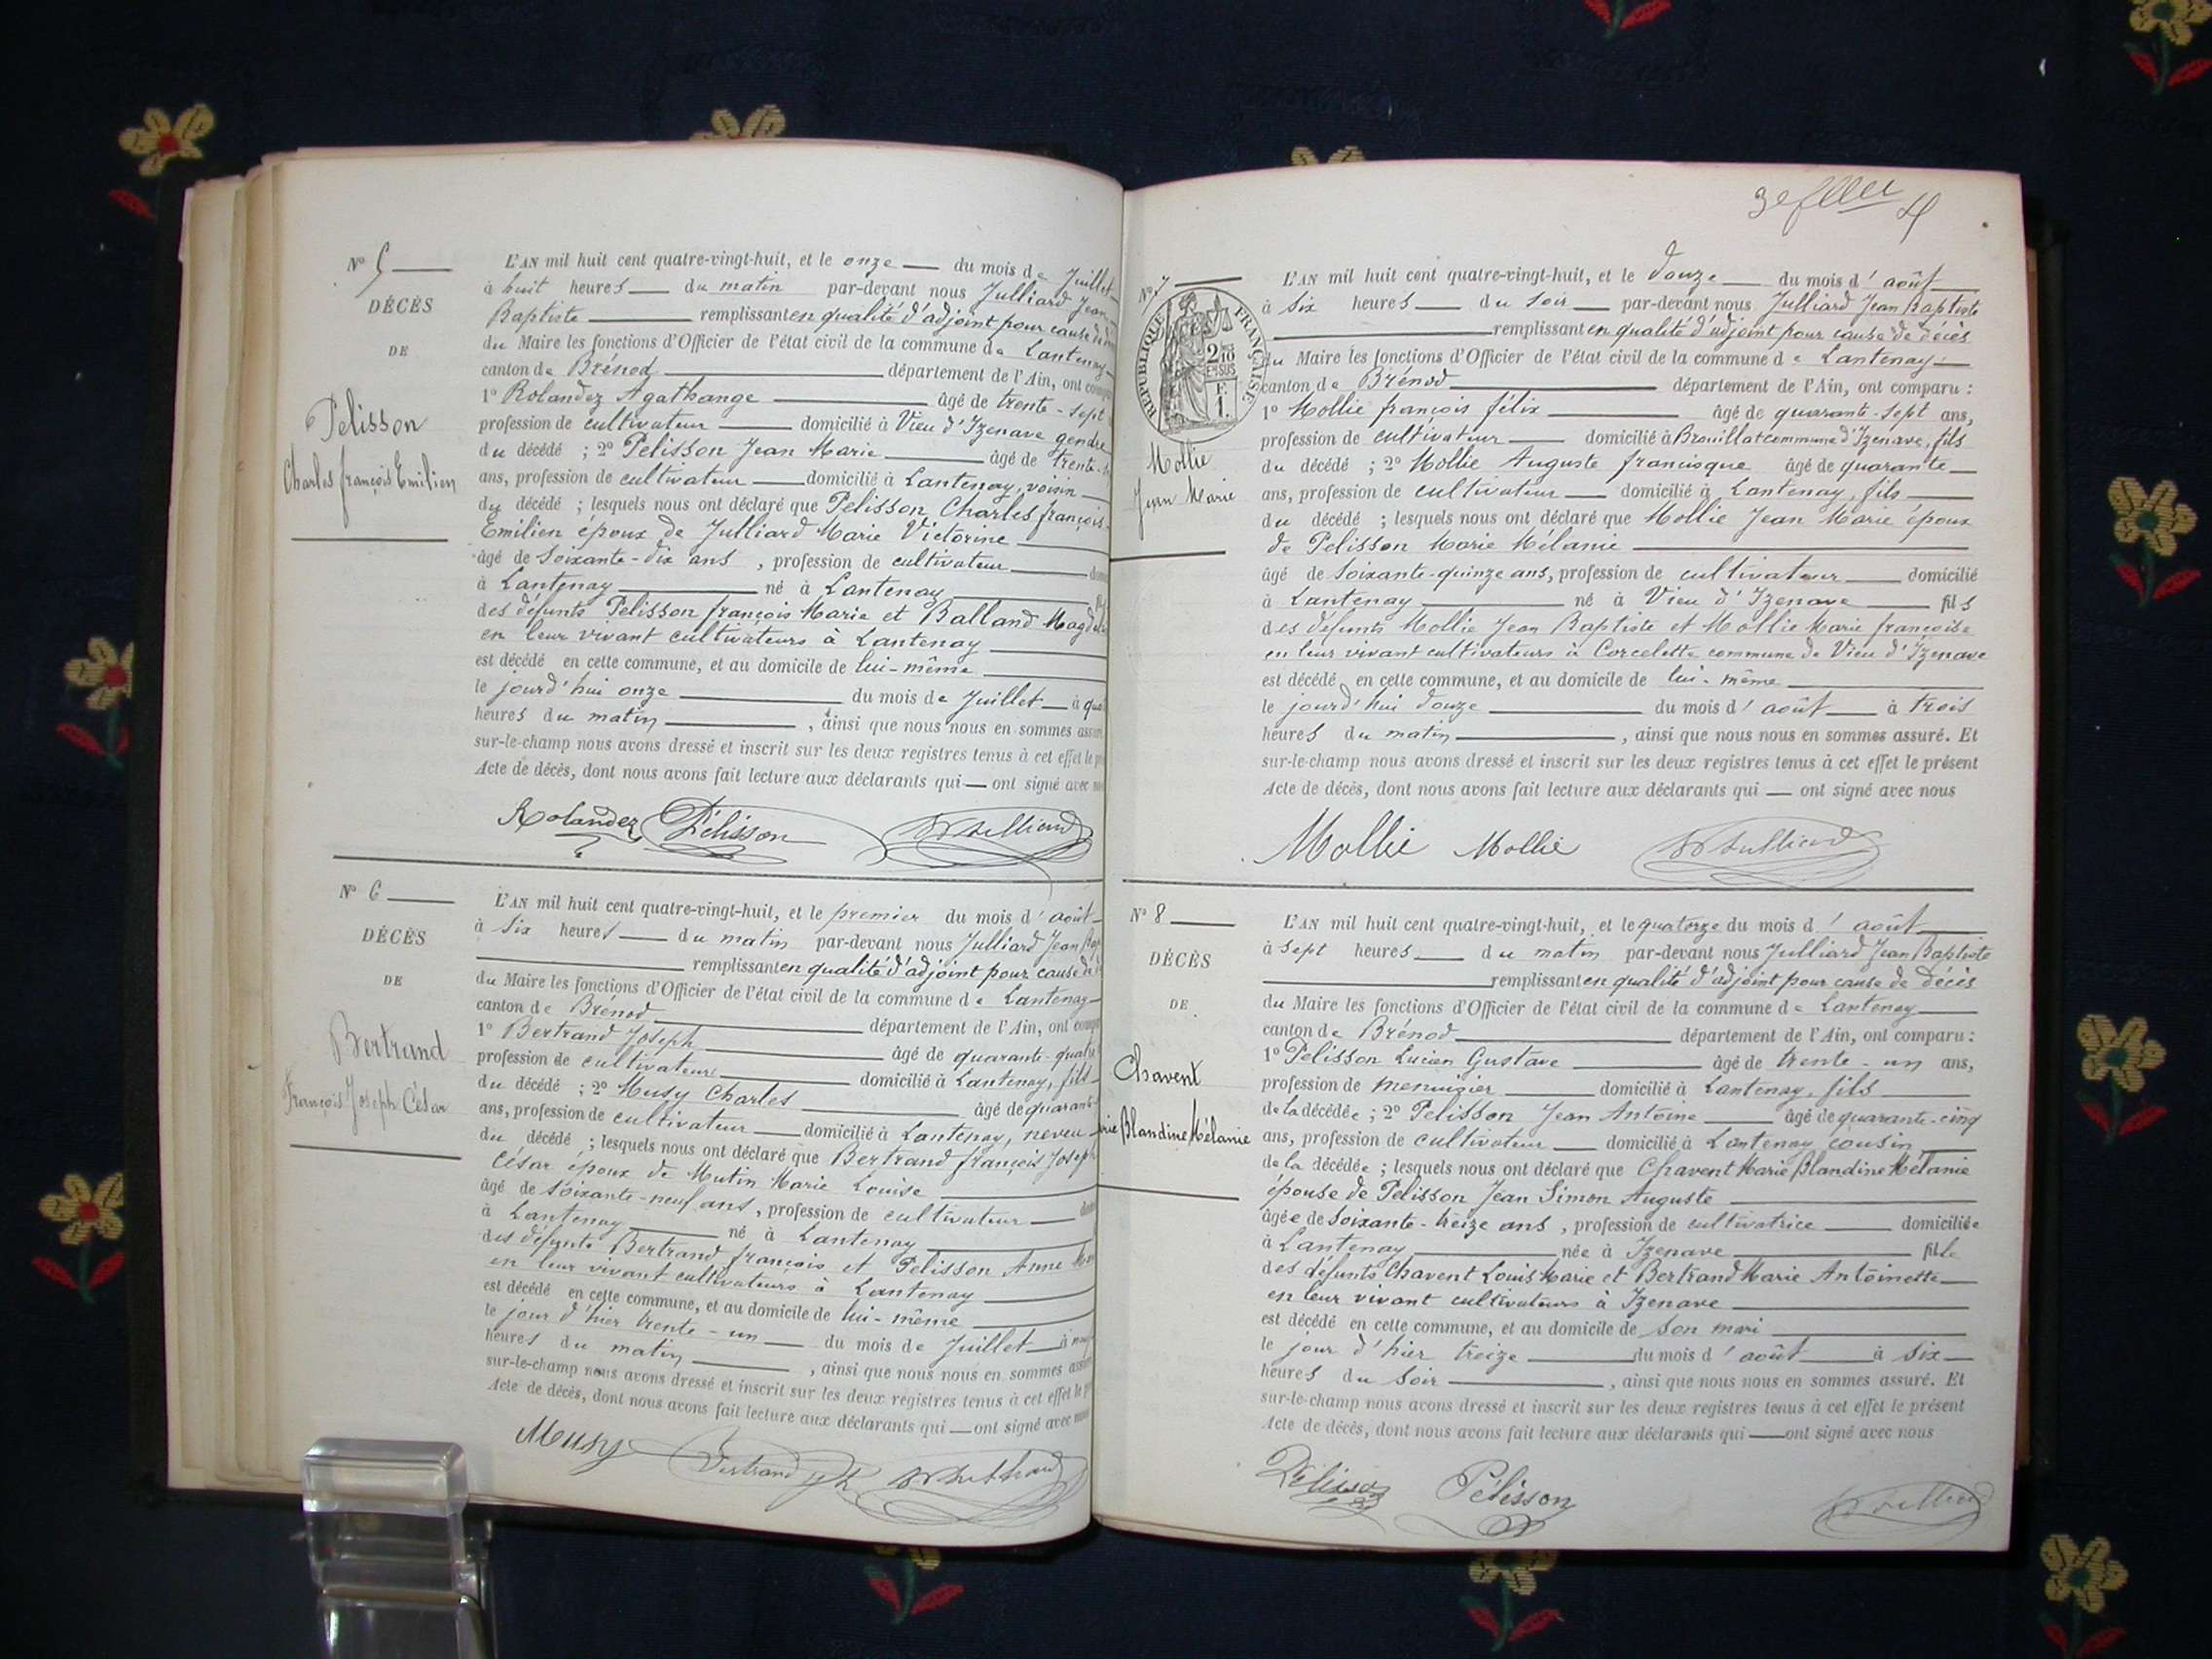 Nº 5
DÉCÈS
DE
Pelisson
Charles françois Emilien
L'AN mil huit cent quatre-vingt-huit, et le onze du mois de Juillet
à huit heures du matin par-devant nous Julliard Jean
Baptiste remplissant en qualité d'adjoint pour cause de
du Maire les fonctions d'Officier de l'état civil de la commune de Lantenay
canton de Brénod département de l'Ain, ont
1º Rolandez Agathange âgé de trente-sept
profession de cultivateur domicilié à Vieu d'Izenave gendre
du décédé ; 2º Pelisson Jean Marie âgé de trente
ans, profession de cultivateur domicilié à Lantenay, voisin
du décédé ; lesquels nous ont déclaré que Pelisson Charles françois
Emilien époux de Julliard Marie Victorine
âgé de soixante-dix ans, profession de cultivateur
à Lantenay né à Lantenay
des défunts Pelisson françois Marie et Balland
en leur vivant cultivateurs à Lantenay
est décédé en cette commune, et au domicile de lui-même
le jourd'hui onze du mois de Juillet à
heures du matin, ainsi que nous nous en sommes
sur-le-champ nous avons dressé et inscrit sur les deux registres tenus à cet effet le
Acte de décès, dont nous avons fait lecture aux déclarants qui ont signé avec
Rolandez Pélisson Julliard
Nº 6
DÉCÈS
DE
Bertrand
François Joseph César
L'AN mil huit cent quatre-vingt-huit, et le premier du mois d'août
à six heures du matin par-devant nous Julliard Jean
remplissant en qualité d'adjoint pour cause de
du Maire les fonctions d'Officier de l'état civil de la commune de Lantenay
canton de Brénod département de l'Ain, ont
1º Bertrand Joseph âgé de quarante-quatre
profession de cultivateur domicilié à Lantenay, fils
du décédé ; 2º Musy Charles âgé de quarante
ans, profession de cultivateur domicilié à Lantenay, neveu
du décédé ; lesquels nous ont déclaré que Bertrand françois Joseph
César époux de Mutin Marie Louise
âgé de soixante-neuf ans, profession de cultivateur
à Lantenay né à Lantenay
des défunts Bertrand françois et Pelisson Anne
en leur vivant cultivateurs à Lantenay
est décédé en cette commune, et au domicile de lui-même
le jour d'hier trente-un du mois de Juillet à
heures du matin, ainsi que nous nous en sommes
sur-le-champ nous avons dressé et inscrit sur les deux registres tenus à cet effet le
Acte de décès, dont nous avons fait lecture aux déclarants qui ont signé avec
Musy Bertrand Jph Julliard
Nº 7
RÉPUBLIQUE FRANÇAISE
2/10 EN SUS
F. 1.
Mollie
Jean Marie
L'AN mil huit cent quatre-vingt-huit, et le douze du mois d'août
à six heures du soir par-devant nous Julliard Jean Baptiste
remplissant en qualité d'adjoint pour cause de décès
du Maire les fonctions d'Officier de l'état civil de la commune de Lantenay
canton de Brénod département de l'Ain, ont comparu :
1º Mollie françois félix âgé de quarante-sept ans,
profession de cultivateur domicilié à Brouillat commune d'Izenave, fils
du décédé ; 2º Mollie Auguste francisque âgé de quarante
ans, profession de cultivateur domicilié à Lantenay, fils
du décédé ; lesquels nous ont déclaré que Mollie Jean Marie époux
de Pelisson Marie Mélanie
âgé de soixante-quinze ans, profession de cultivateur domicilié
à Lantenay né à Vieu d'Izenave fils
des défunts Mollie Jean Baptiste et Mollie Marie françoise
en leur vivant cultivateurs à Corcelette commune de Vieu d'Izenave
est décédé en cette commune, et au domicile de lui-même
le jourd'hui douze du mois d'août à trois
heures du matin, ainsi que nous nous en sommes assuré. Et
sur-le-champ nous avons dressé et inscrit sur les deux registres tenus à cet effet le présent
Acte de décès, dont nous avons fait lecture aux déclarants qui ont signé avec nous
Mollie Mollie Julliard
Nº 8
DÉCÈS
DE
Chavent
Blandine Mélanie
L'AN mil huit cent quatre-vingt-huit, et le quatorze du mois d'août
à sept heures du matin par-devant nous Julliard Jean Baptiste
remplissant en qualité d'adjoint pour cause de décès
du Maire les fonctions d'Officier de l'état civil de la commune de Lantenay
canton de Brénod département de l'Ain, ont comparu :
1º Pelisson Lucien Gustave âgé de trente-un ans,
profession de menuisier domicilié à Lantenay, fils
de la décédée ; 2º Pelisson Jean Antoine âgé de quarante-cinq
ans, profession de cultivateur domicilié à Lantenay cousin
de la décédée ; lesquels nous ont déclaré que Chavent Marie Blandine Mélanie
épouse de Pelisson Jean Simon Auguste
âgée de soixante-treize ans, profession de cultivatrice domiciliée
à Lantenay née à Izenave fille
des défunts Chavent Louis Marie et Bertrand Marie Antoinette
en leur vivant cultivateurs à Izenave
est décédé en cette commune, et au domicile de son mari
le jour d'hier treize du mois d'août à six
heures du soir, ainsi que nous nous en sommes assuré. Et
sur-le-champ nous avons dressé et inscrit sur les deux registres tenus à cet effet le présent
Acte de décès, dont nous avons fait lecture aux déclarants qui ont signé avec nous
Pelisson Pélisson Julliard